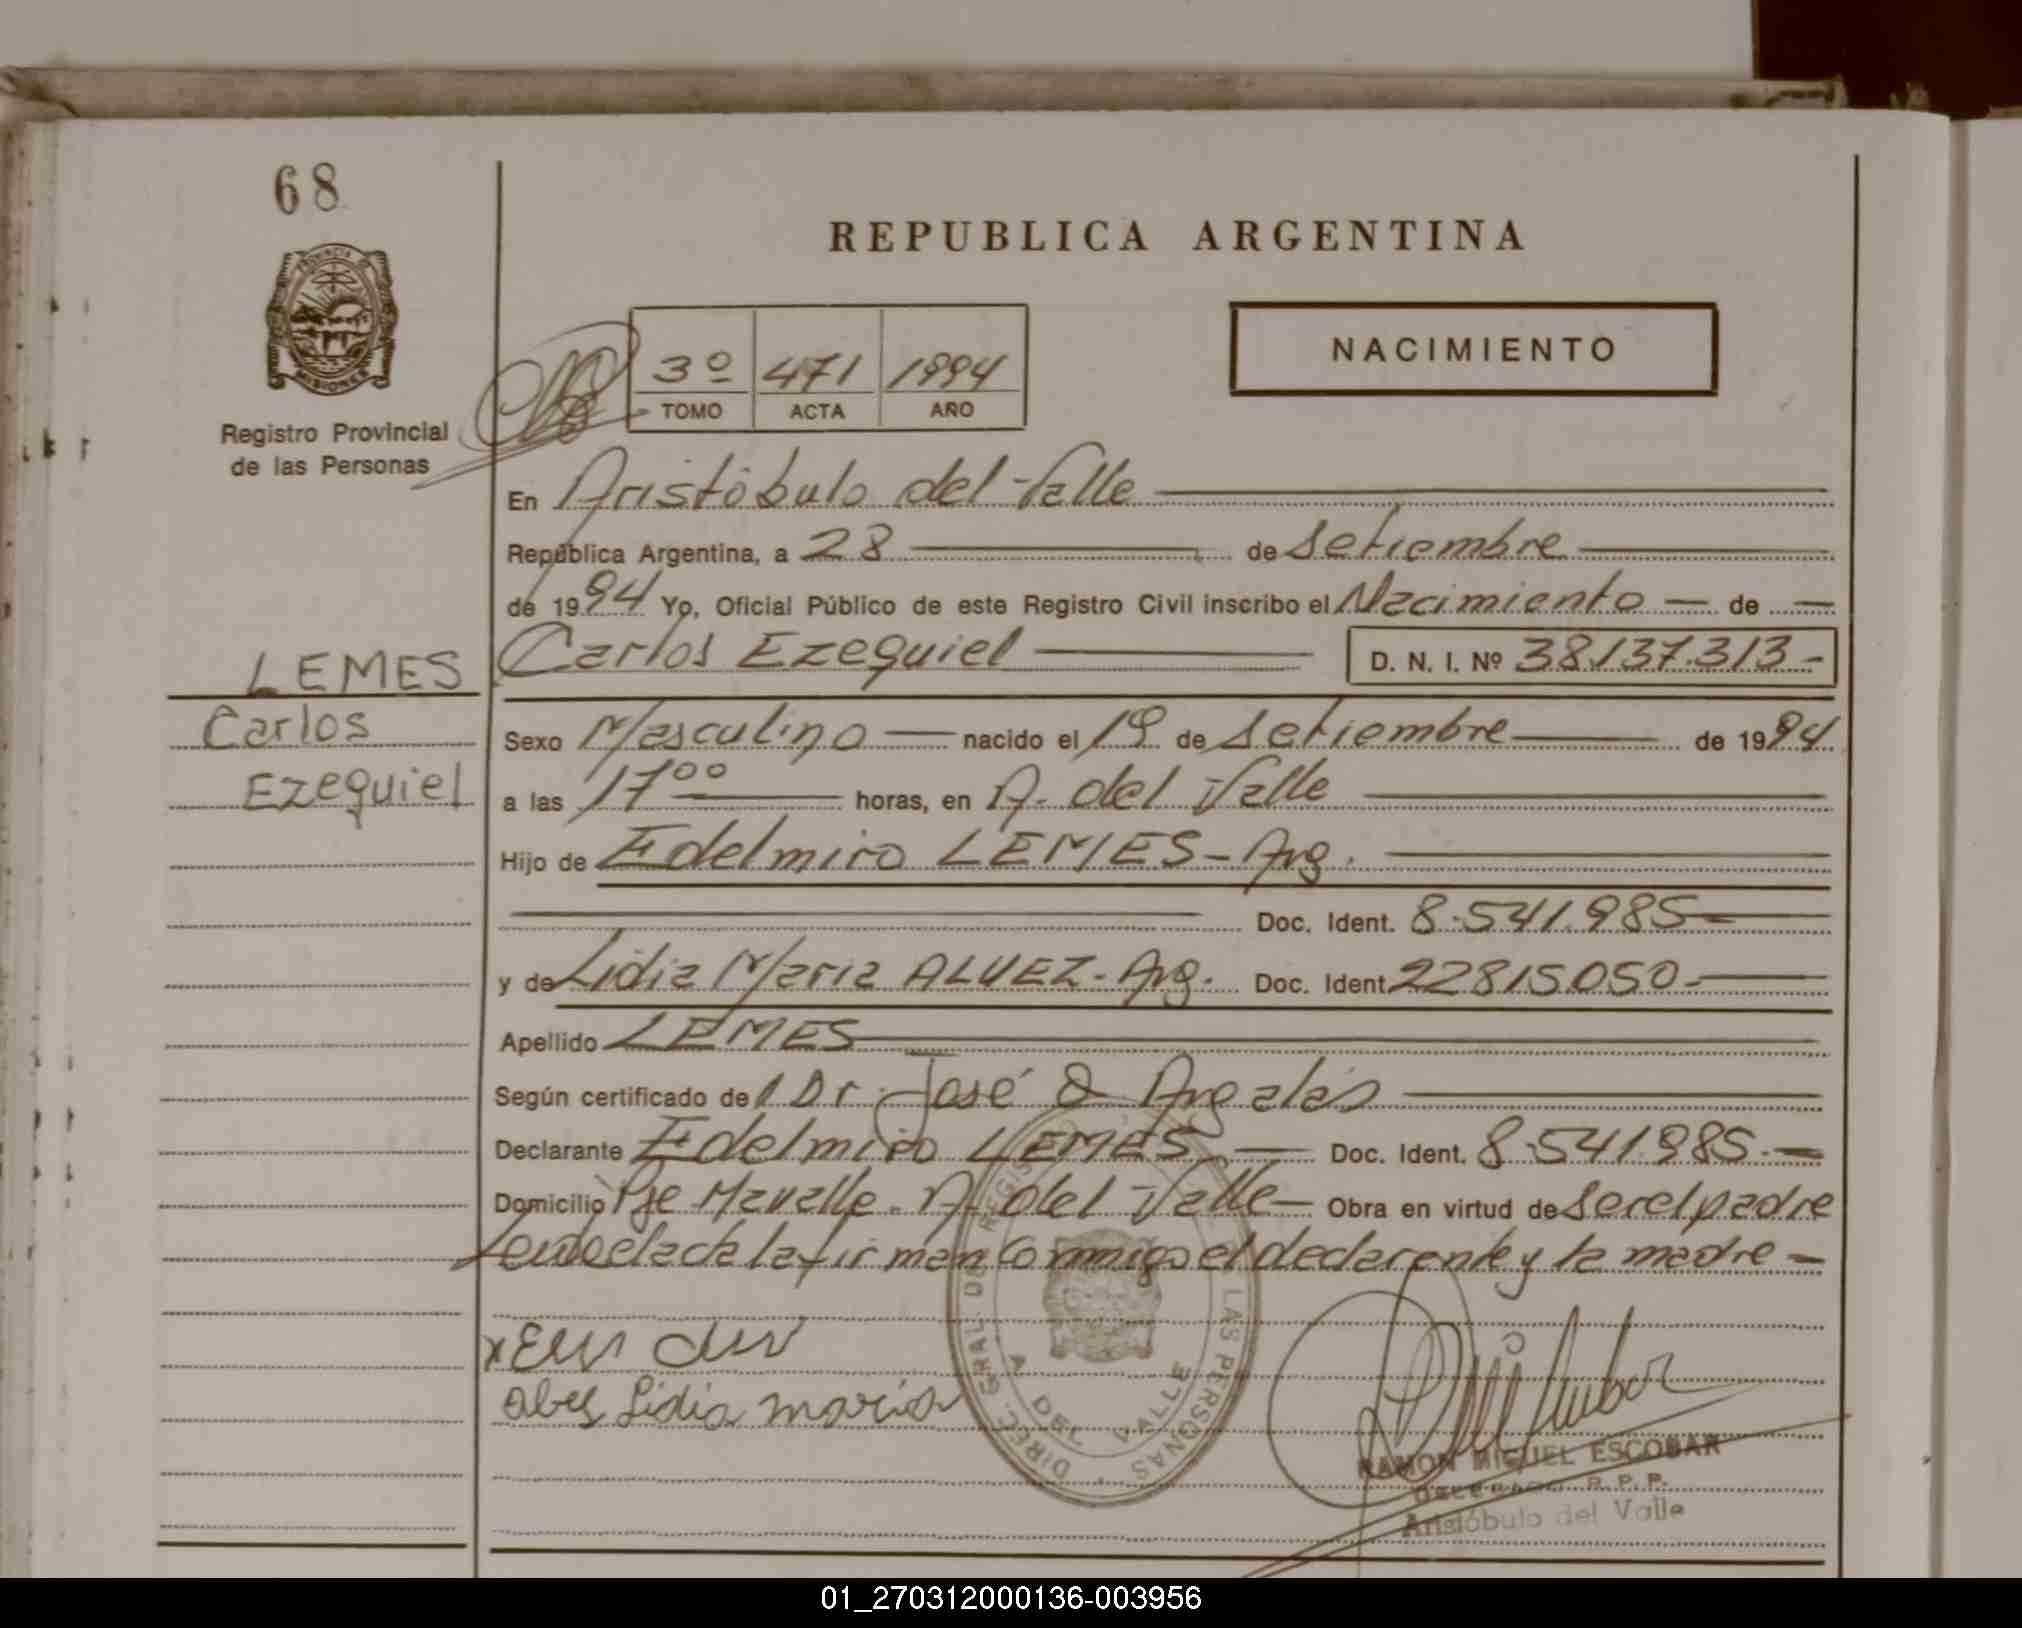 68
REPUBLICA ARGENTINA
PROVINCIA DE
MISIONES
Registro Provincial
de las Personas
3º 471 1994
TOMO ACTA AÑO
NACIMIENTO
En Aristóbulo del Valle
República Argentina, a 28 de Setiembre
de 1994 Yo, Oficial Público de este Registro Civil inscribo el Nacimiento de
LEMES
Carlos
Ezequiel
Carlos Ezequiel D. N. I. Nº 38.137.313-
Sexo Masculino nacido el 19 de Setiembre de 1994
a las 1700 horas, en A. del Valle
Hijo de Edelmiro LEMES - Arg.
Doc. Ident. 8.541.985
y de Lidia Maria ALVEZ - Arg. Doc. Ident. 22815.050-
Apellido LEMES
Según certificado del Dr. José O Argalás
Declarante Edelmiro LEMES Doc. Ident. 8.541.985.-
Domicilio Pje Mavalle. A. del Valle Obra en virtud de ser el padre
acta la firman conmigo el declarante y la madre
Lidia maria
DIREC. GRAL. DE REGIS LAS PERSONAS
A DEL VALLE
RAMON MIGUEL ESCOBAR
DELEGADO R.P.P.
Aristóbulo del Valle
01_270312000136-003956